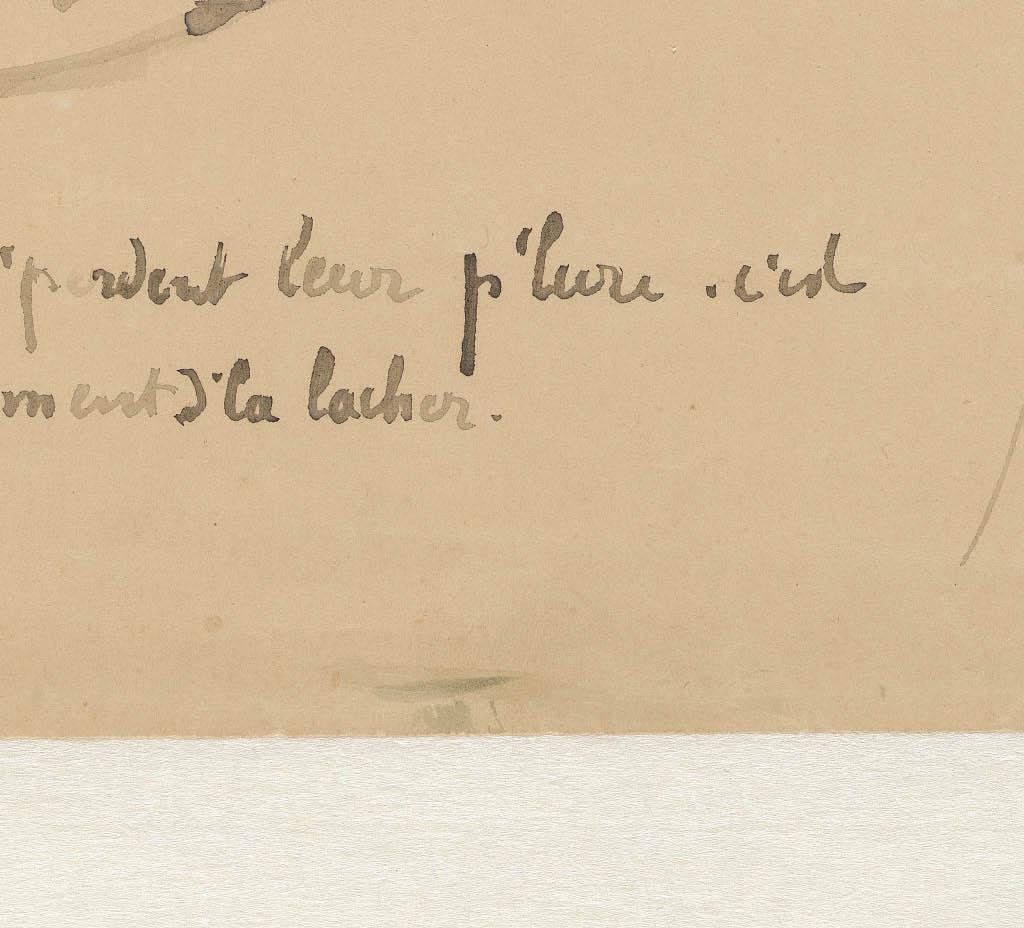 'perdent leur p'lure . c'est
ment d'la lacher.